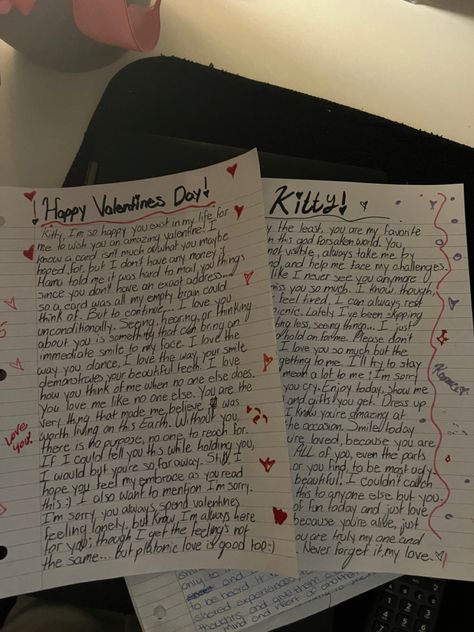 ! Happy Valentines Day !
Kitty, I'm so happy you exist in my life for
me to wish you an amazing valentine! I
know a card isnt much of what you maybe
hoped for, but I don't have any money &
Mama told me it was hard to mail you things
since you dont have an exact address...
so a card was all my empty brain could
think of. But to continue... I love you
unconditionally. Seeing, hearing, or thinking
about you is something that can bring an
immediate smile to my face. I love the
way you dance, I love the way your smile
demonstrates your beautiful teeth. I love
how you think of me when no one else does.
You love me like no one else. You are the
very thing that made me believe it was
worth living on this Earth. Without you,
there is no purpose, no one to reach for.
If I could tell you this while holding you,
I would but you're so far away. Still I
hope you feel my embrace as you read
this :) I also want to mention I'm sorry.
I'm sorry you always spend valentines
feeling lonely, but know I'm always here
for you; though I get the feelings not
the same... but platonic love is good too :)
Love you!
Kitty!
y the least, you are my favorite
in this god forsaken world. You,
not visible, always take me by
nd, and help me face my challenges.
like I never see you anymore
miss you so much. I know though,
feel tired, I can always rest
Lately I've been skipping
ting loss, seeing things... I just
hold on for me. Please don't
I love you so much but the
getting to me. I'll try to stay
mean a lot to me! I'm sorry
you cry. Enjoy today, show me
and gifts you get. Dress up
I know you're amazing at
the occasion. Smile! today
you're loved, because you are
ALL of you, even the parts
you find, to be most ugly
beautiful. I couldn't
this to anyone else but you
of fun today and just love
because you're alive, just
you are truly my one and
Never forget it, my love.
only to
to be heard
shared experiences
thoughts and give them
mind and heart